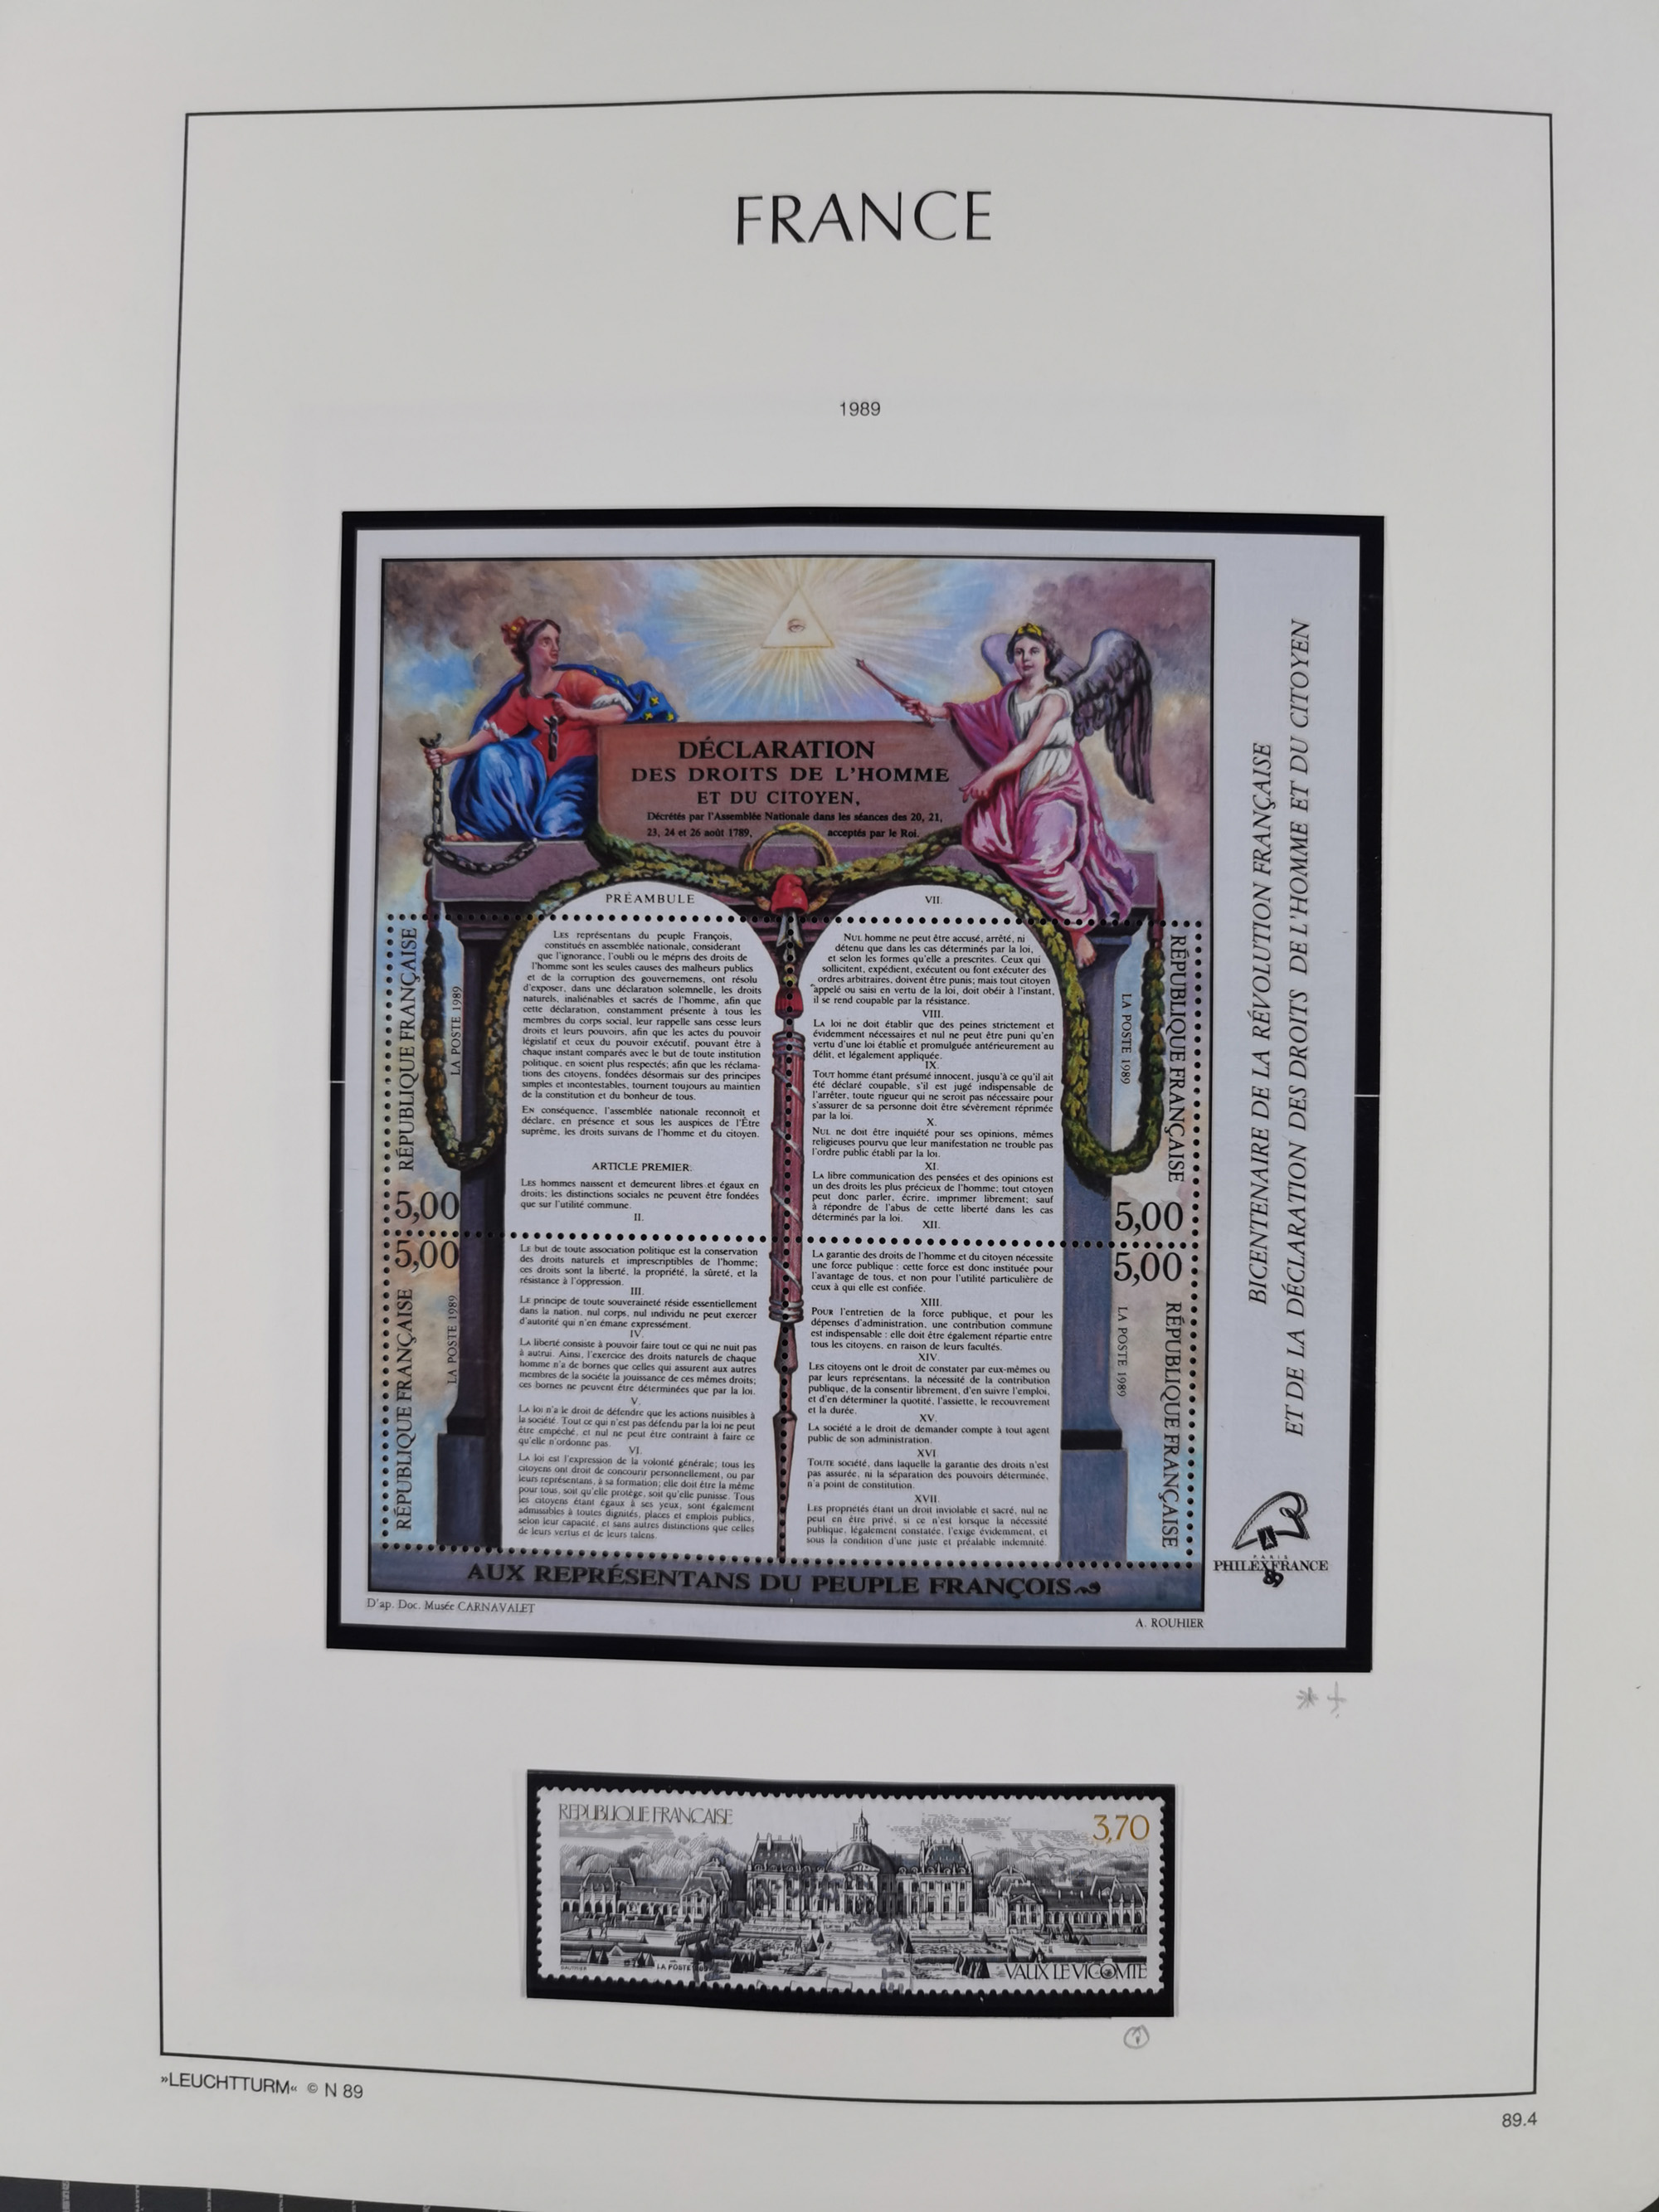 FRANCE
1989
DÉCLARATION
DES DROITS DE L'HOMME
ET DU CITOYEN,
Décrétés par l'Assemblée Nationale dans les séances des 20, 21,
23, 24 et 26 août 1789, acceptés par le Roi.
PRÉAMBULE
LES représentans du peuple François,
constitués en assemblée nationale, considérant
que l'ignorance, l'oubli ou le mépris des droits de
l'homme sont les seules causes des malheurs publics
et de la corruption des gouvernemens, ont résolu
d'exposer, dans une déclaration solemnelle, les droits
naturels, inaliénables et sacrés de l'homme, afin que
cette déclaration, constamment présente à tous les
membres du corps social, leur rappelle sans cesse leurs
droits et leurs pouvoirs, afin que les actes du pouvoir
législatif et ceux du pouvoir exécutif, pouvant être à
chaque instant comparés avec le but de toute institution
politique, en soient plus respectés; afin que les réclama-
tions des citoyens, fondées désormais sur des principes
simples et incontestables, tournent toujours au maintien
de la constitution et du bonheur de tous.
EN conséquence, l'assemblée nationale reconnoît et
déclare, en présence et sous les auspices de l'Être
suprême, les droits suivans de l'homme et du citoyen.
ARTICLE PREMIER.
LES hommes naissent et demeurent libres et égaux en
droits; les distinctions sociales ne peuvent être fondées
que sur l'utilité commune.
II.
LE but de toute association politique est la conservation
des droits naturels et imprescriptibles de l'homme;
ces droits sont la liberté, la propriété, la sûreté, et la
résistance à l'oppression.
III.
LE principe de toute souveraineté réside essentiellement
dans la nation, nul corps, nul individu ne peut exercer
d'autorité qui n'en émane expressément.
IV.
LA liberté consiste à pouvoir faire tout ce qui ne nuit pas
à autrui. Ainsi, l'exercice des droits naturels de chaque
homme n'a de bornes que celles qui assurent aux autres
membres de la société la jouissance de ces mêmes droits;
ces bornes ne peuvent être déterminées que par la loi.
V.
LA loi n'a le droit de défendre que les actions nuisibles à
la société. Tout ce qui n'est pas défendu par la loi ne peut
être empêché, et nul ne peut être contraint à faire ce
qu'elle n'ordonne pas.
VI.
LA loi est l'expression de la volonté générale; tous les
citoyens ont droit de concourir personnellement, ou par
leurs représentans, à sa formation; elle doit être la même
pour tous, soit qu'elle protège, soit qu'elle punisse. Tous
les citoyens étant égaux à ses yeux, sont également
admissibles à toutes dignités, places et emplois publics,
selon leur capacité, et sans autres distinctions que celles
de leurs vertus et de leurs talens.
VII.
NUL homme ne peut être accusé, arrêté, ni
détenu que dans les cas déterminés par la loi,
et selon les formes qu'elle a prescrites. Ceux qui
sollicitent, expédient, exécutent ou font exécuter des
ordres arbitraires, doivent être punis; mais tout citoyen
appelé ou saisi en vertu de la loi, doit obéir à l'instant,
il se rend coupable par la résistance.
VIII.
LA loi ne doit établir que des peines strictement et
évidemment nécessaires et nul ne peut être puni qu'en
vertu d'une loi établie et promulguée antérieurement au
délit, et légalement appliquée.
IX.
TOUT homme étant présumé innocent, jusqu'à ce qu'il ait
été déclaré coupable, s'il est jugé indispensable de
l'arrêter, toute rigueur qui ne seroit pas nécessaire pour
s'assurer de sa personne doit être sévèrement réprimée
par la loi.
X.
NUL ne doit être inquiété pour ses opinions, mêmes
religieuses pourvu que leur manifestation ne trouble pas
l'ordre public établi par la loi.
XI.
LA libre communication des pensées et des opinions est
un des droits les plus précieux de l'homme; tout citoyen
peut donc parler, écrire, imprimer librement; sauf
à répondre de l'abus de cette liberté dans les cas
déterminés par la loi.
XII.
LA garantie des droits de l'homme et du citoyen nécessite
une force publique : cette force est donc instituée pour
l'avantage de tous, et non pour l'utilité particulière de
ceux à qui elle est confiée.
XIII.
POUR l'entretien de la force publique, et pour les
dépenses d'administration, une contribution commune
est indispensable : elle doit être également répartie entre
tous les citoyens, en raison de leurs facultés.
XIV.
LES citoyens ont le droit de constater par eux-mêmes ou
par leurs représentans, la nécessité de la contribution
publique, de la consentir librement, d'en suivre l'emploi,
et d'en déterminer la quotité, l'assiette, le recouvrement
et la durée.
XV.
LA société a le droit de demander compte à tout agent
public de son administration.
XVI.
TOUTE société, dans laquelle la garantie des droits n'est
pas assurée, ni la séparation des pouvoirs déterminée,
n'a point de constitution.
XVII.
LES propriétés étant un droit inviolable et sacré, nul ne
peut en être privé, si ce n'est lorsque la nécessité
publique, légalement constatée, l'exige évidemment, et
sous la condition d'une juste et préalable indemnité.
RÉPUBLIQUE FRANÇAISE
LA POSTE 1989
5,00
5,00
LA POSTE 1989
RÉPUBLIQUE FRANÇAISE
RÉPUBLIQUE FRANÇAISE
LA POSTE 1989
5,00
5,00
LA POSTE 1989
RÉPUBLIQUE FRANÇAISE
AUX REPRÉSENTANS DU PEUPLE FRANÇOIS
D'ap. Doc. Musée CARNAVALET
A. ROUHIER
BICENTENAIRE DE LA RÉVOLUTION FRANÇAISE
ET DE LA DÉCLARATION DES DROITS DE L'HOMME ET DU CITOYEN
PARIS
PHILEXFRANCE
89
REPUBLIQUE FRANÇAISE
3,70
LA POSTE
VAUX LE VICOMTE
»LEUCHTTURM« © N 89
89.4